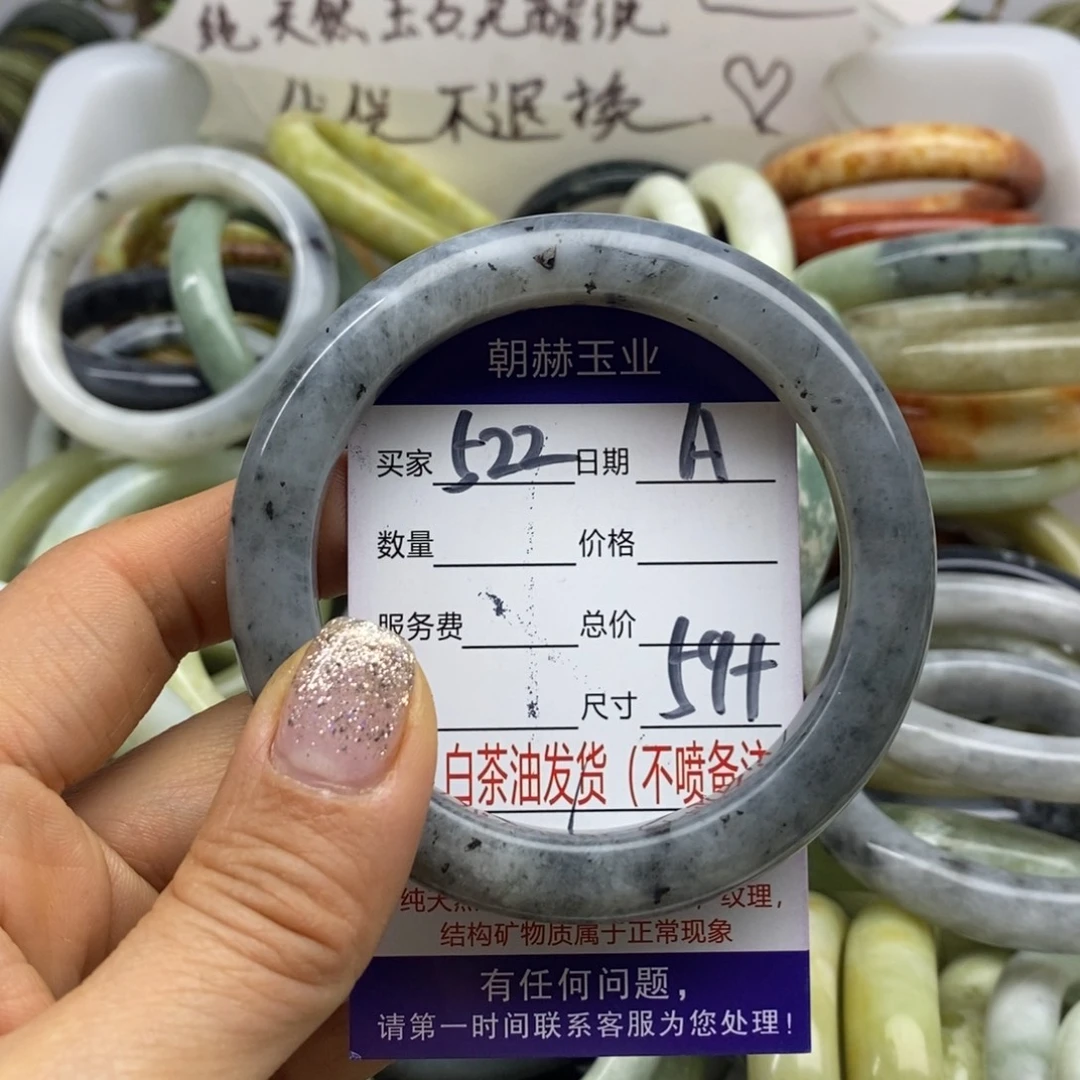 纯天然玉石
不退换
朝赫玉业
买家 522 日期 A
数量 价格
服务费 总价
尺寸 59+
白茶油发货（不喷备
纯天 纹理，
结构矿物质属于正常现象
有任何问题，
请第一时间联系客服为您处理！